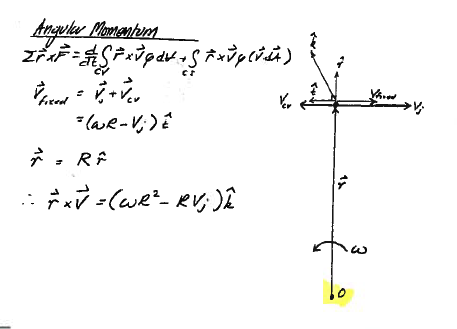 Angular Momentum
Σr⃗×F⃗ = d/dt ∫_CV r⃗×V⃗ρdV + ∫_CS r⃗×V⃗ρ(V⃗·dA⃗)
V⃗_fixed = V⃗_j + V⃗_cv
= (ωR − V_j) t̂
r⃗ = R r̂
∴ r⃗×V⃗ = (ωR² − RV_j) k̂
k̂
r̂
t̂
V_cv
V_fixed
V_j
r⃗
ω
O